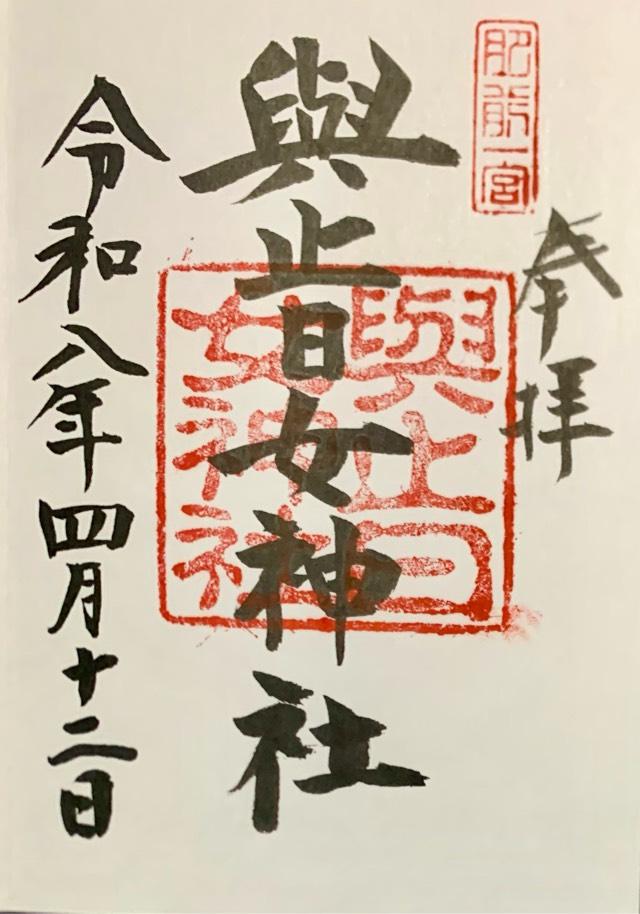 肥前一宮
奉拝
與止日女神社
與止日女神社
令和八年四月十二日